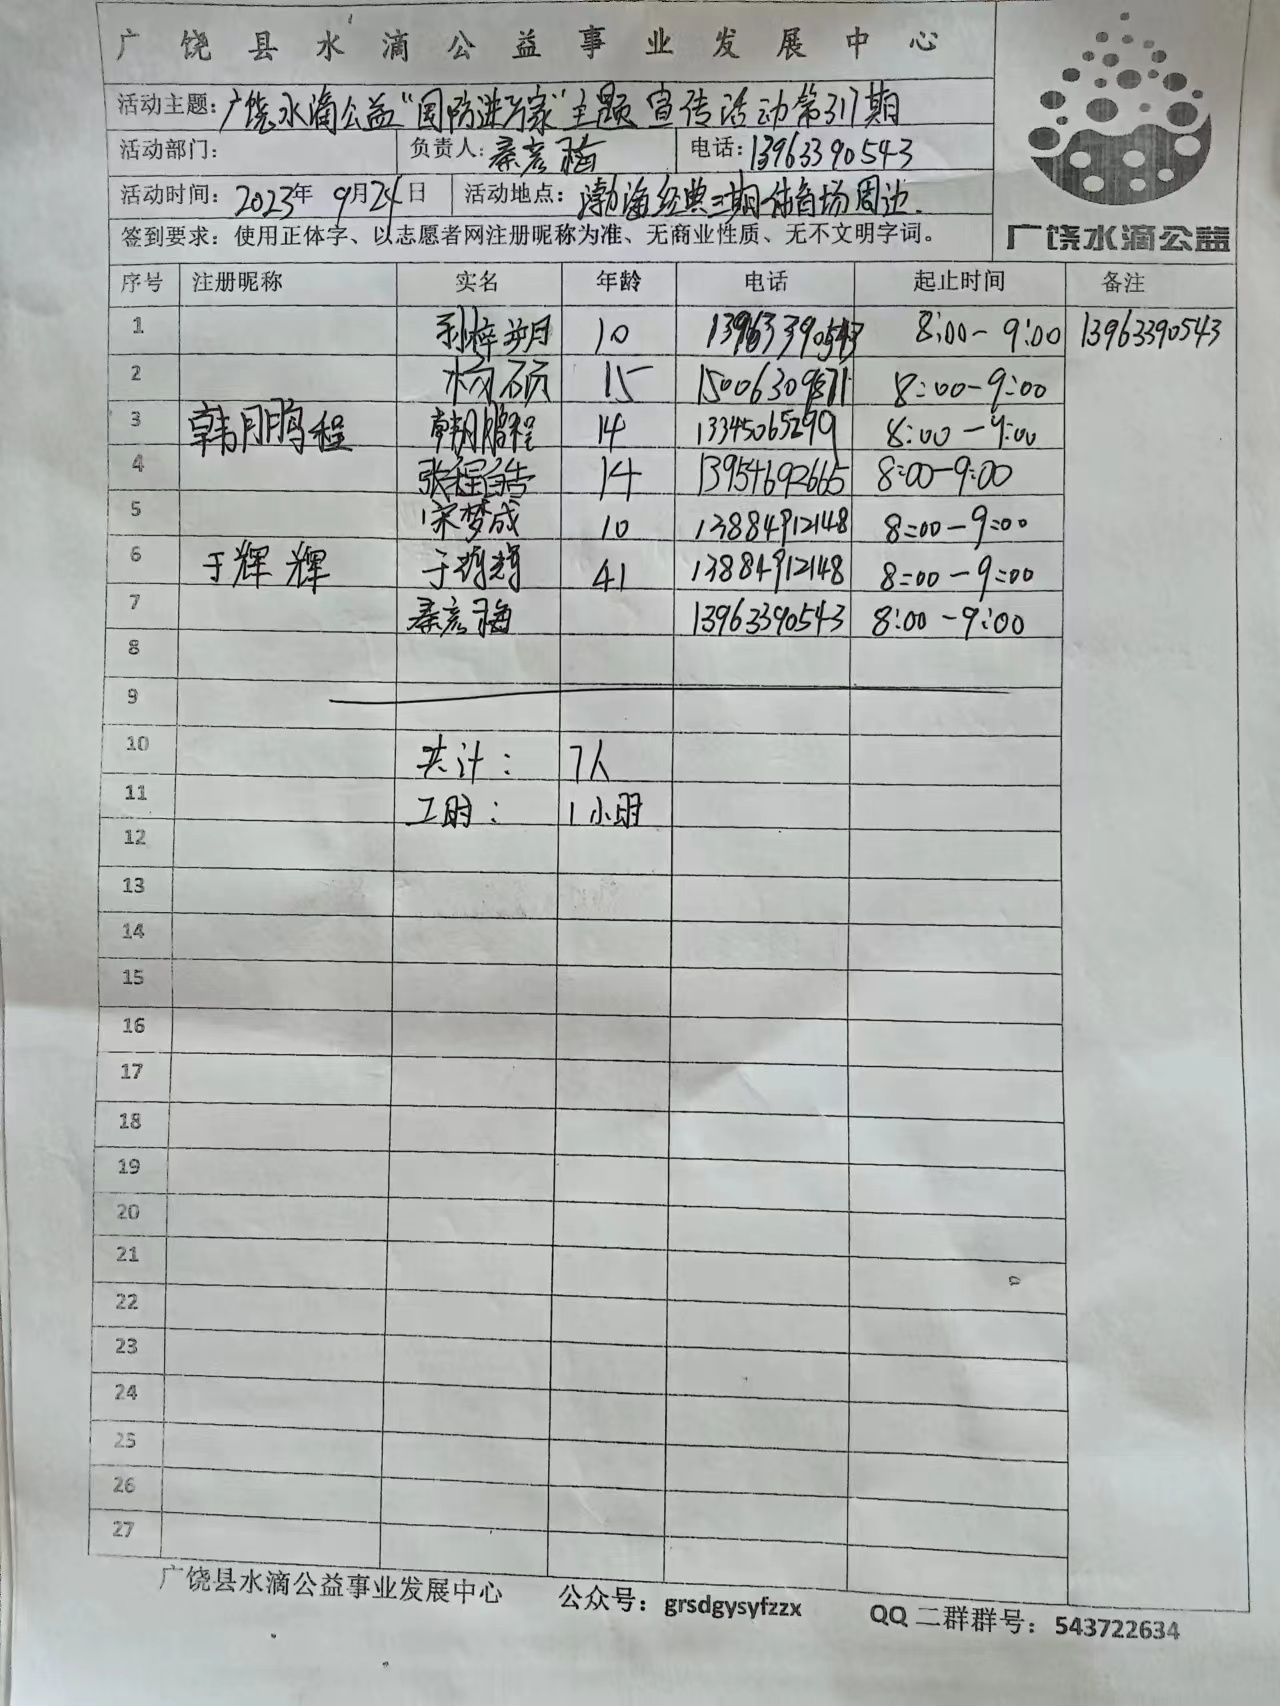 广饶县水滴公益事业发展中心
活动主题：广饶水滴公益“国防进万家”主题宣传活动第317期
活动部门： 负责人：秦彦梅 电话：13963390543
活动时间：2023年9月24日 活动地点：渤海经典三期体育场周边.
签到要求：使用正体字、以志愿者网注册昵称为准、无商业性质、无不文明字词。
广饶水滴公益
序号 注册昵称 实名 年龄 电话 起止时间 备注
1 10 13963390543 8:00-9:00 13963390543
2 杨硕 15 8:00-9:00
3 韩朋鹏程 14 13345065299 8:00-9:00
4 张程皓 14 13954692665 8:00-9:00
5 宋梦成 10 13884912148 8:00-9:00
6 于辉辉 于辉辉 41 13884912148 8:00-9:00
7 秦彦梅 13963390543 8:00-9:00
8
9
10 共计： 7人
11 工时： 1小时
12
13
14
15
16
17
18
19
20
21
22
23
24
25
26
27
广饶县水滴公益事业发展中心 公众号：grsdgysyfzzx QQ二群群号：543722634